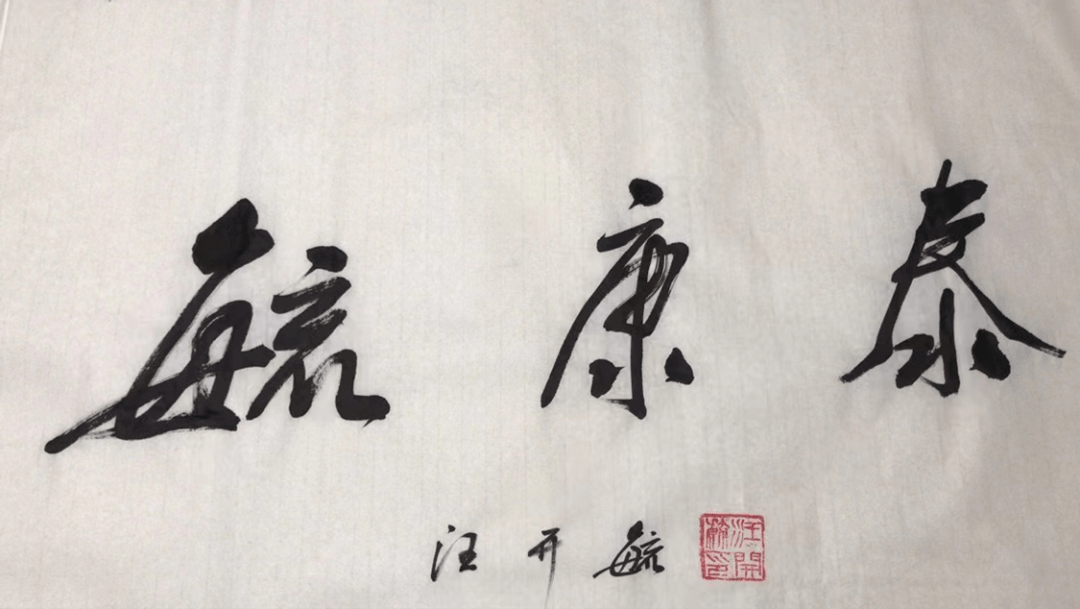 毓康泰
汪开毓
汪開毓印